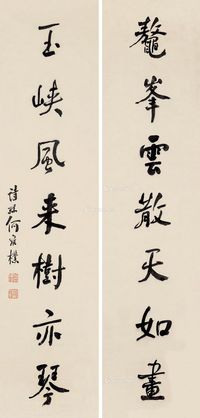 鼇峯雲散天如畫
玉峽風来樹亦琴
詩孫何維樸